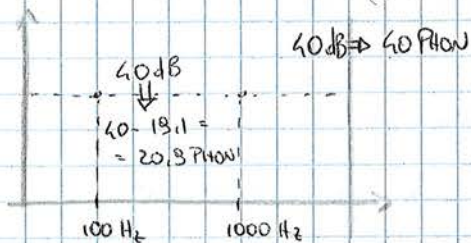 40 dB ⇒ 40 PHON
40 dB
⇓
40 - 19,1 =
= 20,9 PHON
100 Hz
1000 Hz